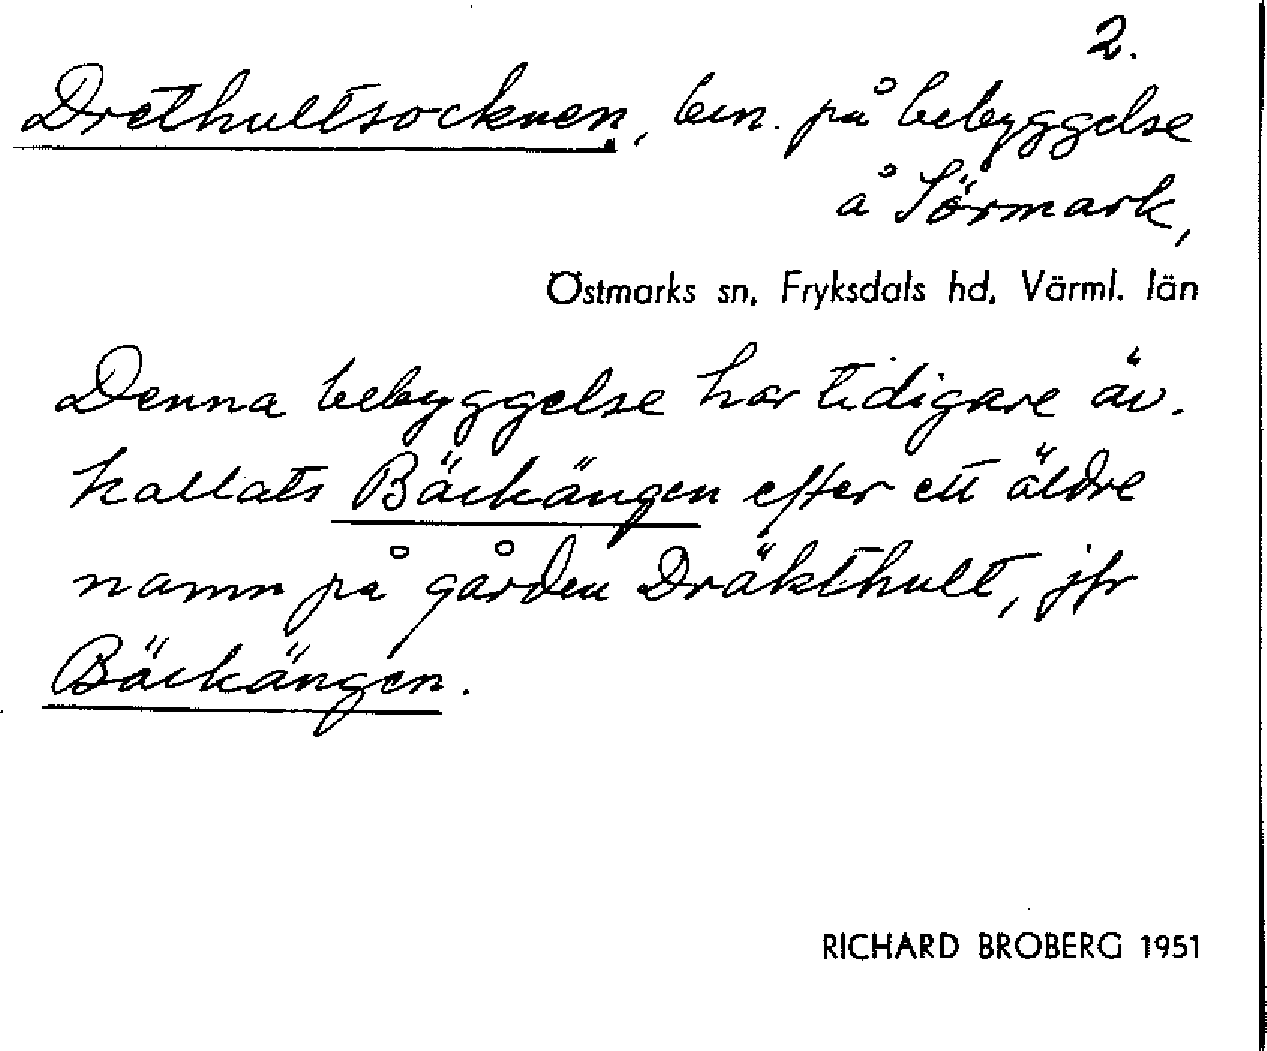 2.
Drethultsocknen, ben. på bebyggelse
å Sörmark,
Östmarks sn, Fryksdals hd, Värml. län
Denna bebyggelse har tidigare äv.
kallats Bäckängen efter ett äldre
namn på gården Dräkthult, jfr
Bäckängen.
RICHARD BROBERG 1951